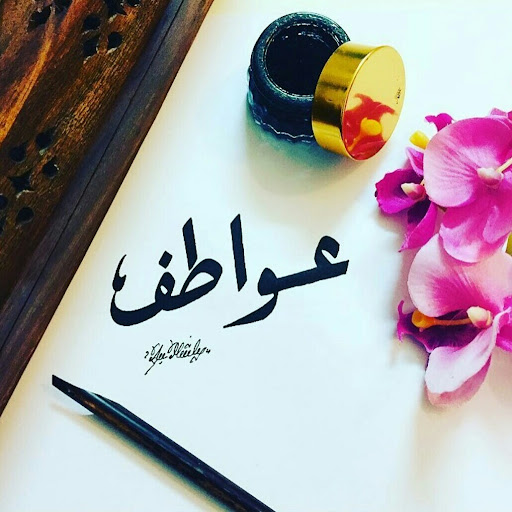 عواطف